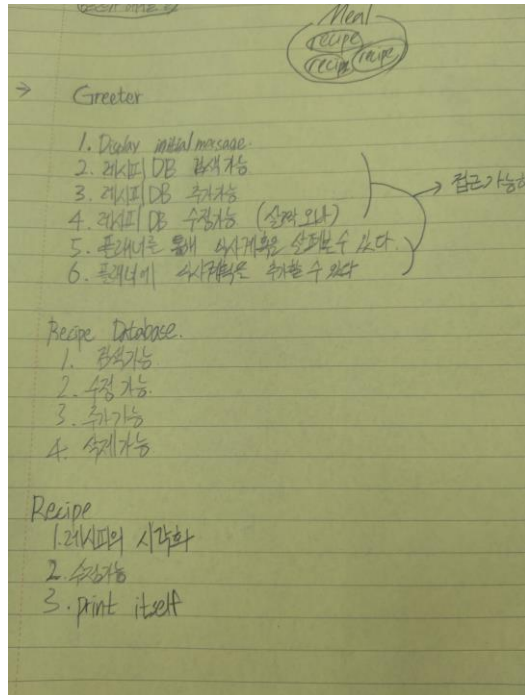 Meal
recipe
recipe recipe
→ Greeter
1. Display initial message.
2. 레시피 DB 검색가능
3. 레시피 DB 추가가능
4. 레시피 DB 수정가능
→ 접근가능
5. 플래너를 통해 식사계획을 살펴볼 수 있다.
6. 플래너에 식사계획을 추가할 수 있다
Recipe Database.
1. 검색가능
2. 수정 가능.
3. 추가가능
4. 삭제가능
Recipe
1. 레시피의 시각화
2. 수정가능
3. print itself